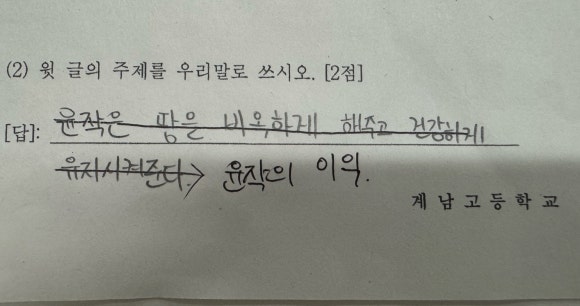 (2) 윗 글의 주제를 우리말로 쓰시오. [2점]
[답]: 윤작은 땅을 비옥하게 해주고 건강하게
유지시켜준다. → 윤작의 이익.
계남고등학교